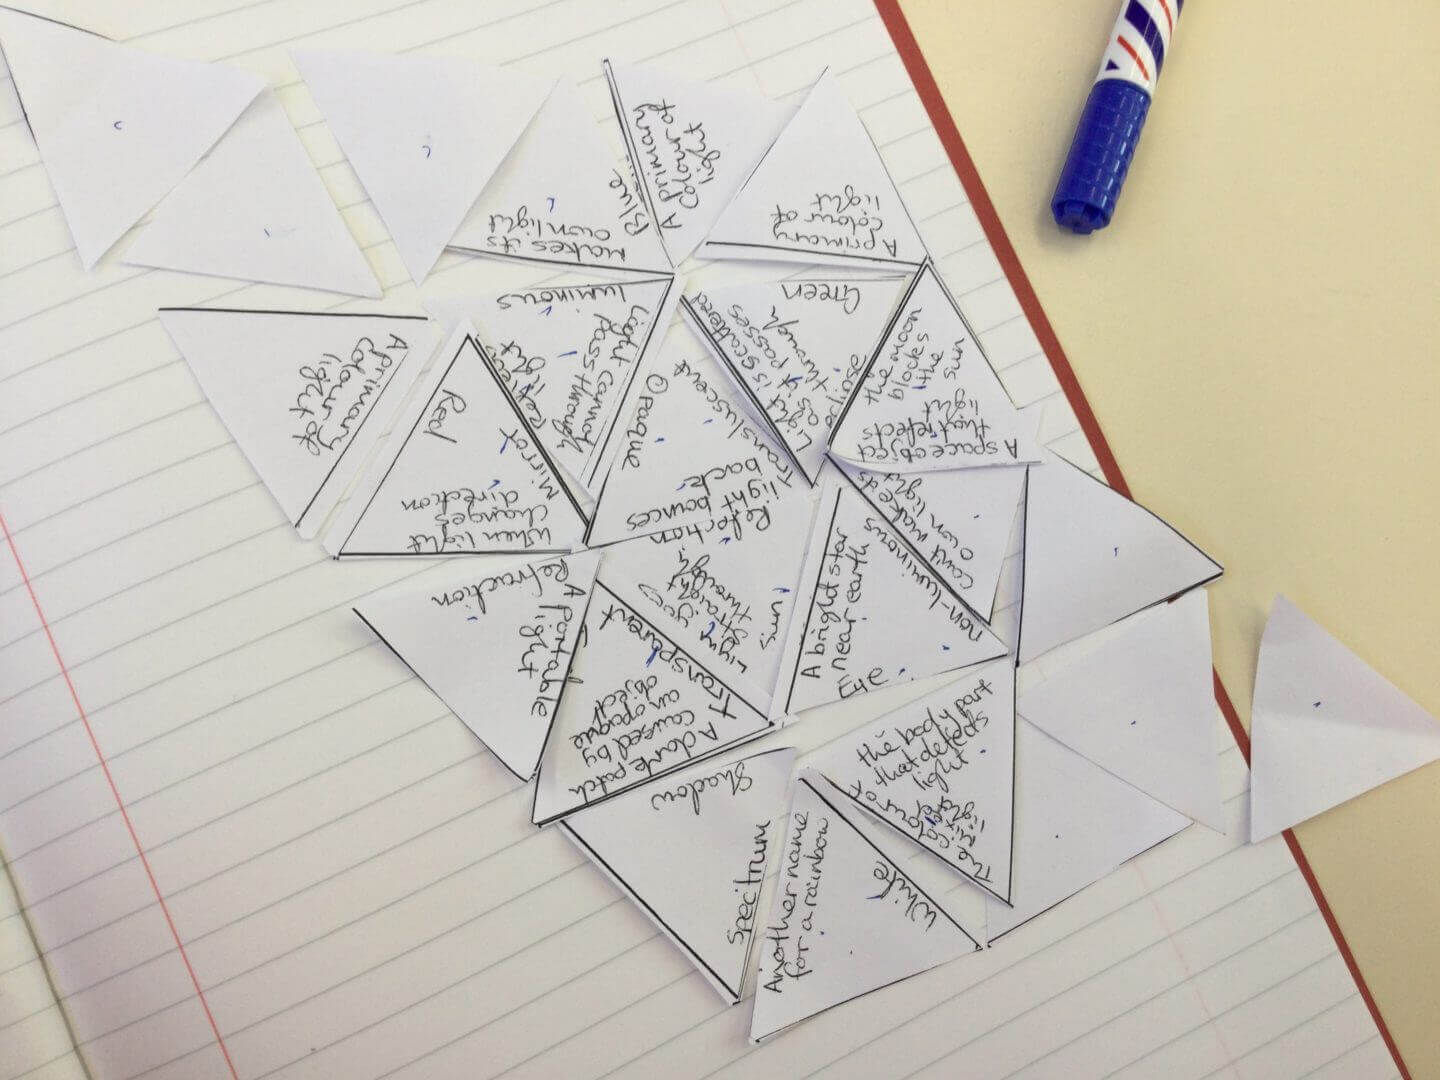 A primary
colour of
light
Blue
Makes its
own light
A primary
colour of
light
luminous
Light cannot
pass through
Green
Light is scattered
as it passes
through
eclipse
the moon
blocks
the
sun
A space object
that reflects
light
A primary
colour of
light
Red
Mirror
When light
changes
direction
Opaque
Translucent
light bounces
back
Reflection
straight
through
Sun
can't make its
own light
non-luminous
A bright star
near earth
Eye
Refraction
A portable
light
Transparent
A dark patch
caused by
an opaque
object
Shadow
Spectrum
the body part
that detects
light
The colour of
White
Another name
for a rainbow